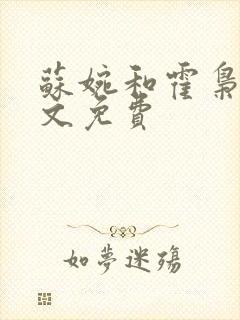 蘇婉和霍梟
文免費
如夢迷殤